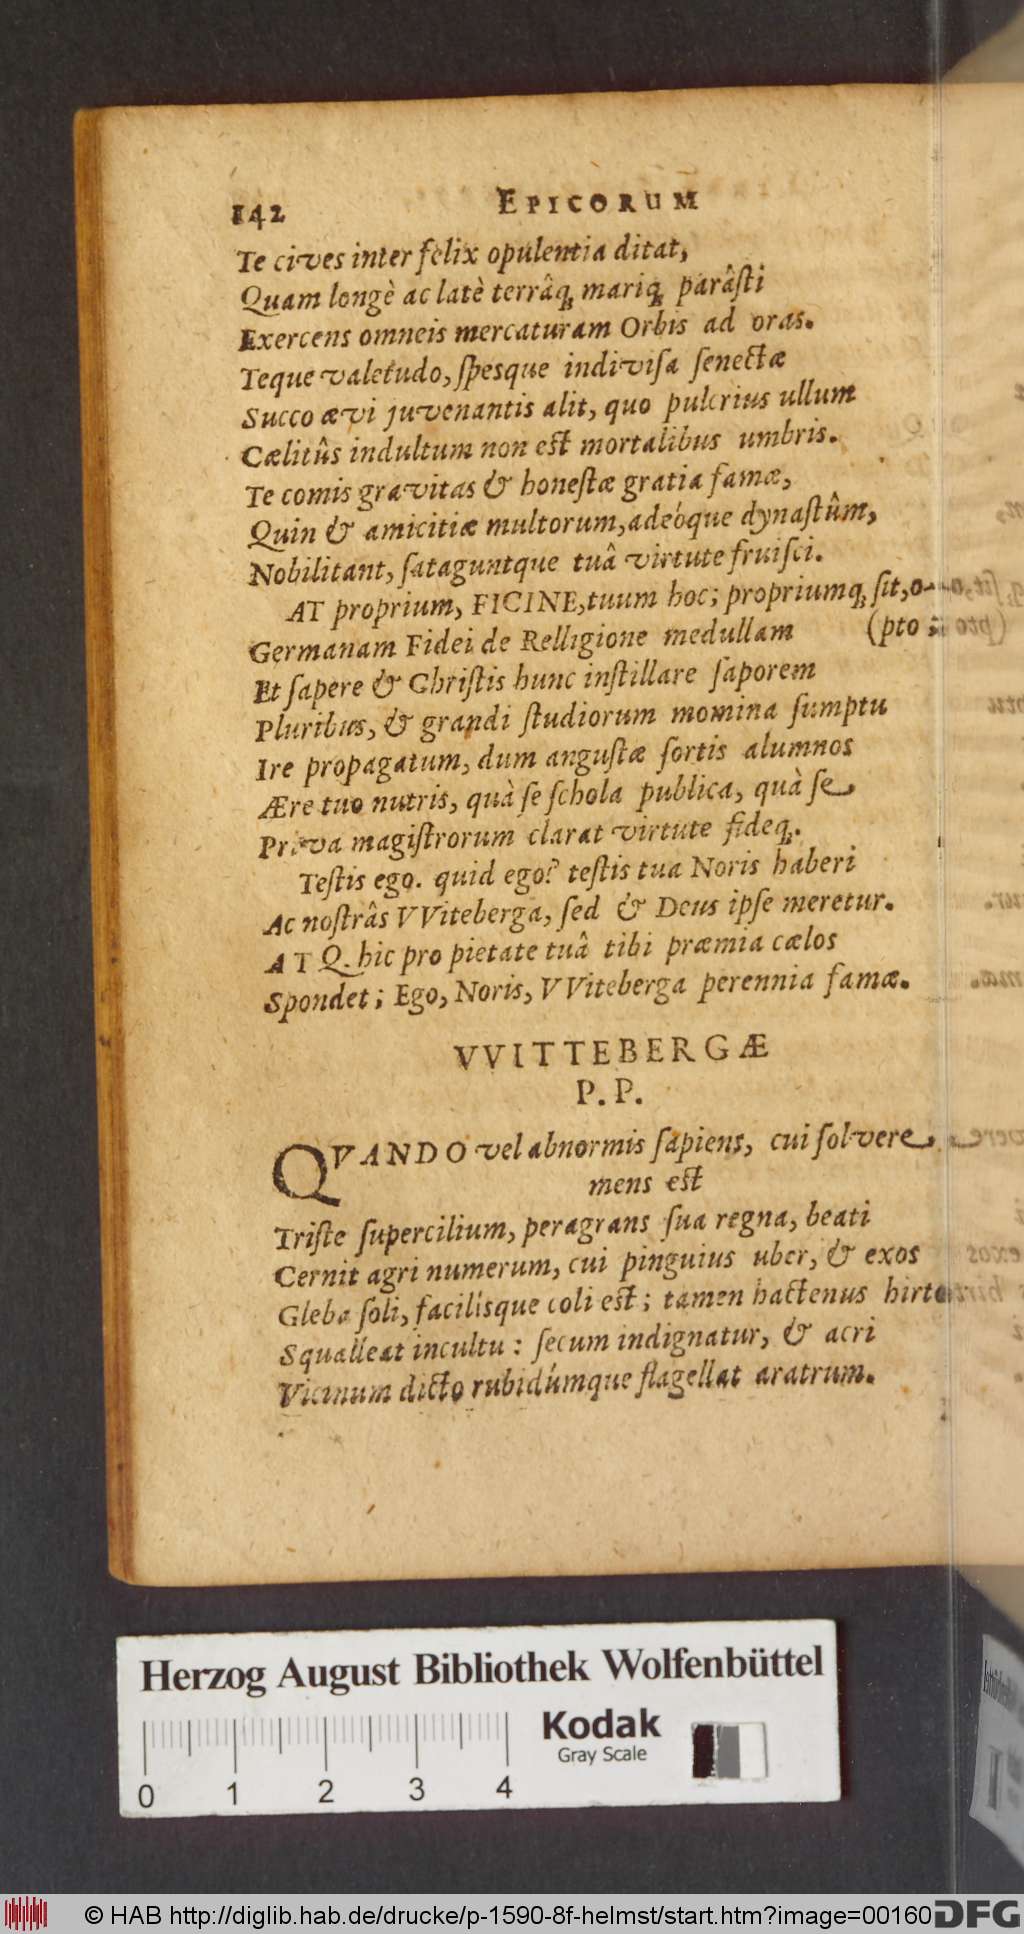 142 EPICORUM
Te cives inter felix opulentia ditat,
Quam longè ac latè terrâq; mariq; parâsti
Exercens omneis mercaturam Orbis ad oras.
Teque valetudo, spesque indivisa senectæ
Succo ævi juvenantis alit, quo pulcrius ullum
Cælitûs indultum non est mortalibus umbris.
Te comis gravitas & honestæ gratia famæ,
Quin & amicitiæ multorum, adeòque dynastûm,
Nobilitant, sataguntque tuâ virtute fruisci.
AT proprium, FICINE, tuum hoc; propriumq; sit, o-
Germanam Fidei de Relligione medullam (pto;
Et sapere & Christis hunc instillare saporem
Pluribus, & grandi studiorum momina sumptu
Ire propagatum, dum angustæ sortis alumnos
Ære tuo nutris, quà se schola publica, quà se
Priva magistrorum clarat virtute fideq;.
Testis ego. quid ego? testis tua Noris haberi
Ac nostrâs VViteberga, sed & Deus ipse meretur.
ATQ. hic pro pietate tuâ tibi præmia cælos
Spondet; Ego, Noris, VViteberga perennia famæ.
VVITTEBERGÆ
P. P.
QVANDO vel abnormis sapiens, cui solvere
mens est
Triste supercilium, peragrans sua regna, beati
Cernit agri numerum, cui pinguius uber, & exos
Gleba soli, facilisque coli est; tamen hactenus hirto
Squalleat incultu: secum indignatur, & acri
Vicinum dicto rubidúmque flagellat aratrum.
Herzog August Bibliothek Wolfenbüttel
Kodak
Gray Scale
0 1 2 3 4
© HAB http://diglib.hab.de/drucke/p-1590-8f-helmst/start.htm?image=00160
DFG